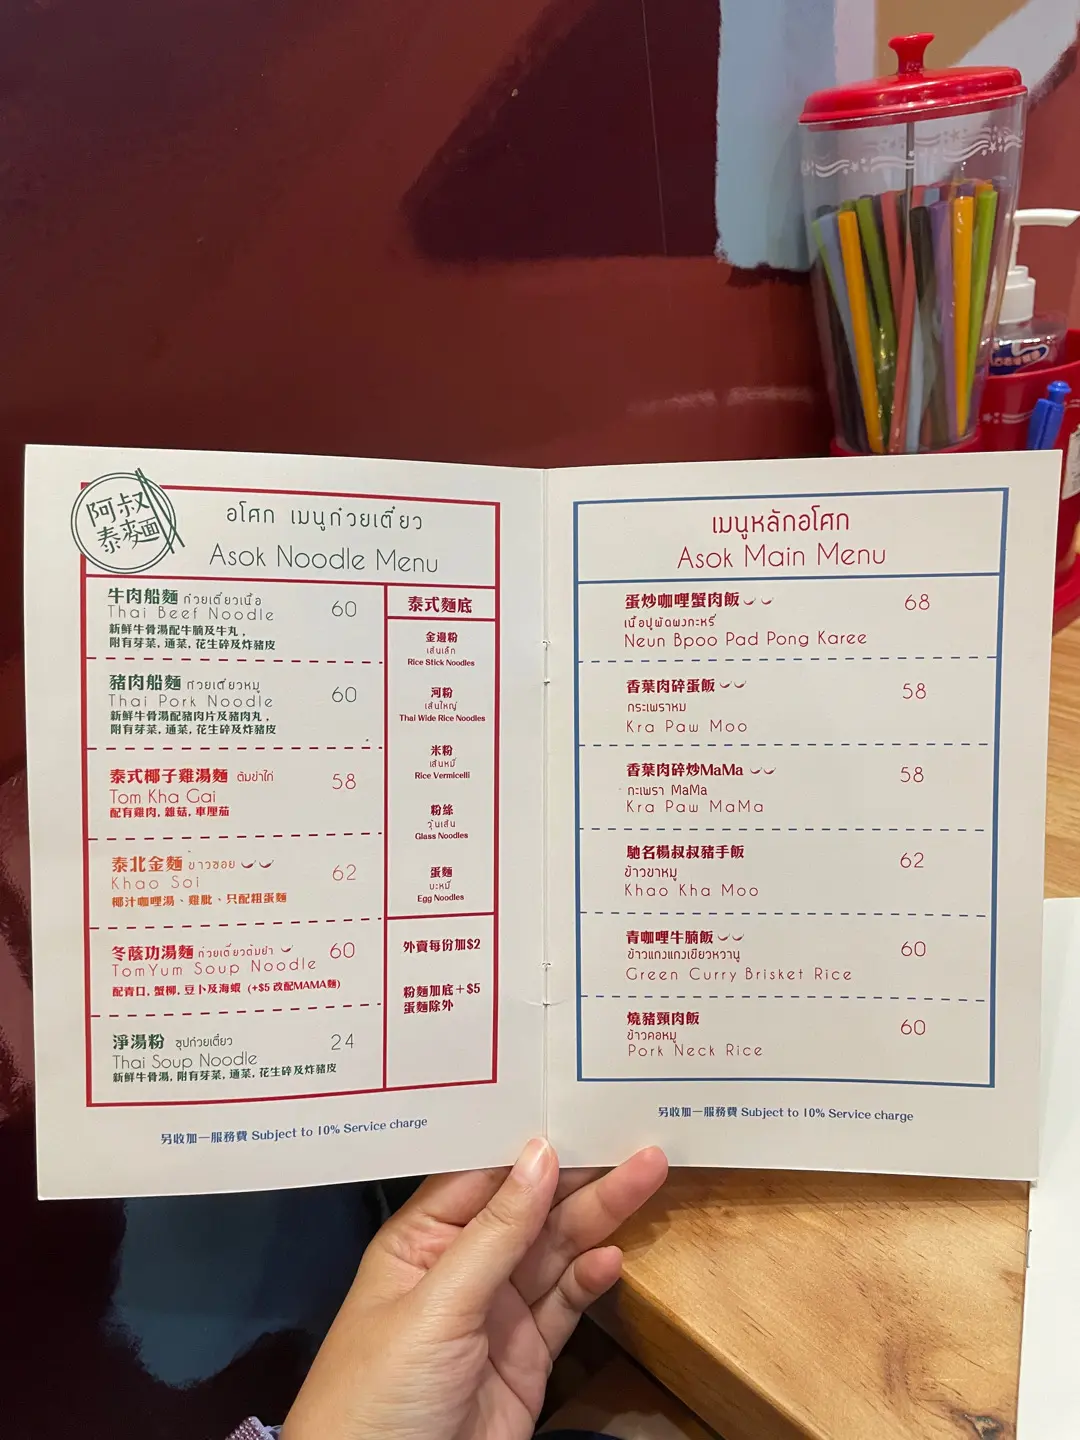 阿叔
泰麵
อโศก เมนูก๋วยเตี๋ยว
Asok Noodle Menu
牛肉船麵 ก๋วยเตี๋ยวเนื้อ 60
Thai Beef Noodle
新鮮牛骨湯配牛腩及牛丸,
附有芽菜, 通菜, 花生碎及炸豬皮
豬肉船麵 ก๋วยเตี๋ยวหมู 60
Thai Pork Noodle
新鮮牛骨湯配豬肉片及豬肉丸,
附有芽菜, 通菜, 花生碎及炸豬皮
泰式椰子雞湯麵 ต้มข่าไก่ 58
Tom Kha Gai
配有雞肉, 雜菇, 車厘茄
泰北金麵 ข้าวซอย 62
Khao Soi
椰汁咖哩湯、雞髀、只配粗蛋麵
冬蔭功湯麵 ก๋วยเตี๋ยวต้มยำ 60
TomYum Soup Noodle
配青口, 蟹柳, 豆卜及海蝦 (+$5 改配MAMA麵)
淨湯粉 ซุปก๋วยเตี๋ยว 24
Thai Soup Noodle
新鮮牛骨湯, 附有芽菜, 通菜, 花生碎及炸豬皮
泰式麵底
金邊粉
เส้นเล็ก
Rice Stick Noodles
河粉
เส้นใหญ่
Thai Wide Rice Noodles
米粉
เส้นหมี่
Rice Vermicelli
粉絲
วุ้นเส้น
Glass Noodles
蛋麵
บะหมี่
Egg Noodles
外賣每份加$2
粉麵加底+$5
蛋麵除外
另收加一服務費 Subject to 10% Service charge
เมนูหลักอโศก
Asok Main Menu
蛋炒咖哩蟹肉飯 68
เนื้อปูผัดผงกะหรี่
Neun Bpoo Pad Pong Karee
香葉肉碎蛋飯 58
กระเพราหม
Kra Paw Moo
香葉肉碎炒MaMa 58
กะเพรา MaMa
Kra Paw MaMa
馳名楊叔叔豬手飯 62
ข้าวขาหมู
Khao Kha Moo
青咖哩牛腩飯 60
ข้าวแกงแกงเขียวหวานู
Green Curry Brisket Rice
燒豬頸肉飯 60
ข้าวคอหมู
Pork Neck Rice
另收加一服務費 Subject to 10% Service charge